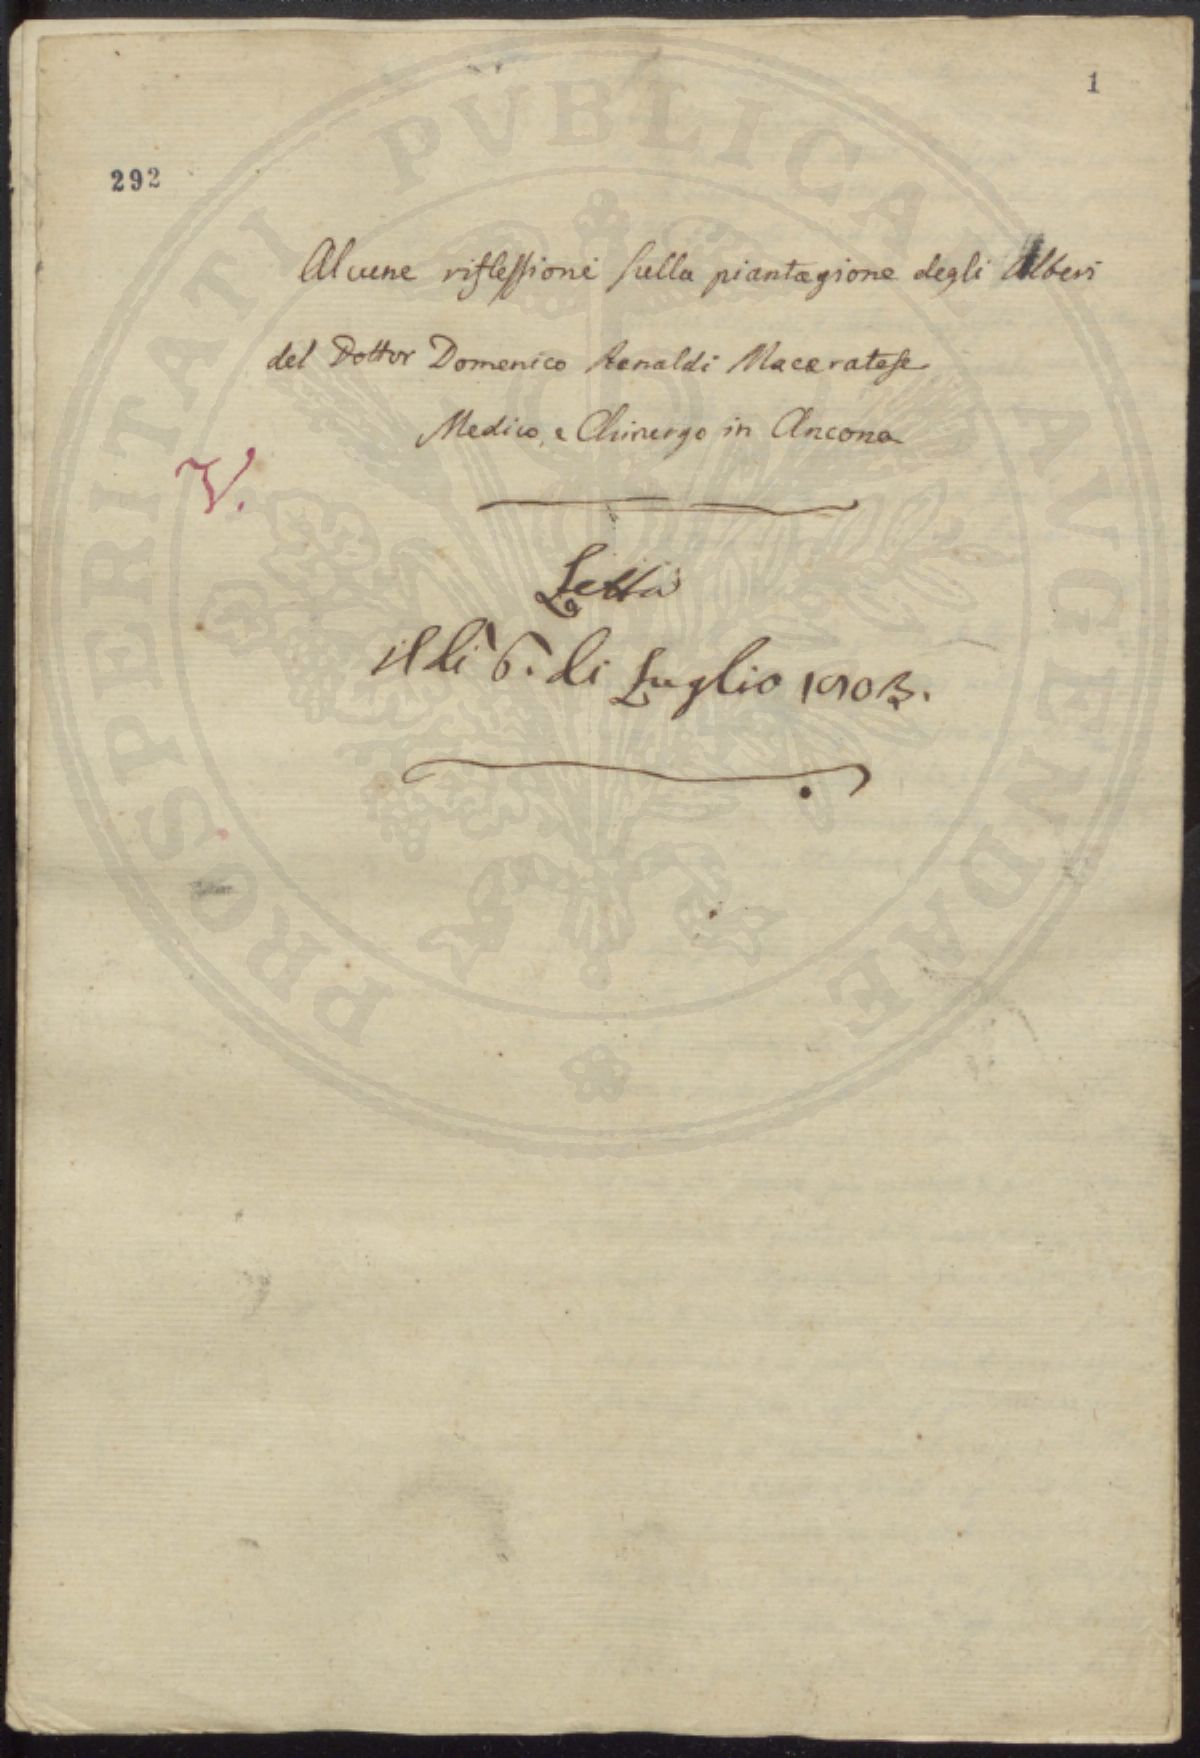 1
292
Alcune riflessioni sulla piantagione degli Alberi
del Dottor Domenico Renaldi Maceratese
Medico, e Chirurgo in Ancona
V.
Letta
il dì 6. di Luglio 1803.
PROSPERITATI PVBLICAE AVGENDAE